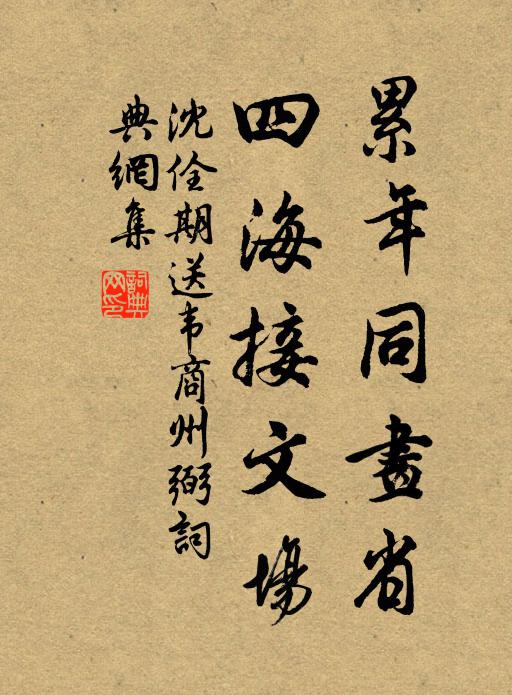 累年同畫省
四海接文場
沈佺期送韦商州弼詞
典網集
詞典网印